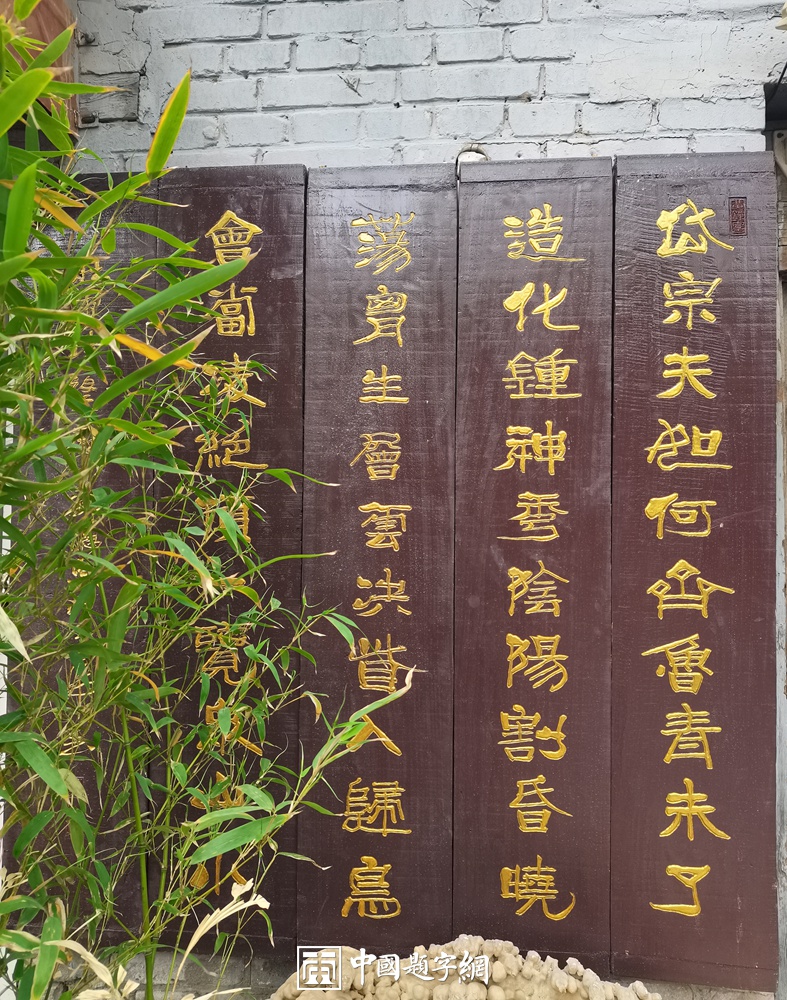 岱宗夫如何齊魯青未了
造化鍾神秀陰陽割昏曉
蕩胷生層雲決眥入歸鳥
會當凌絕頂覽眾
中國題字網